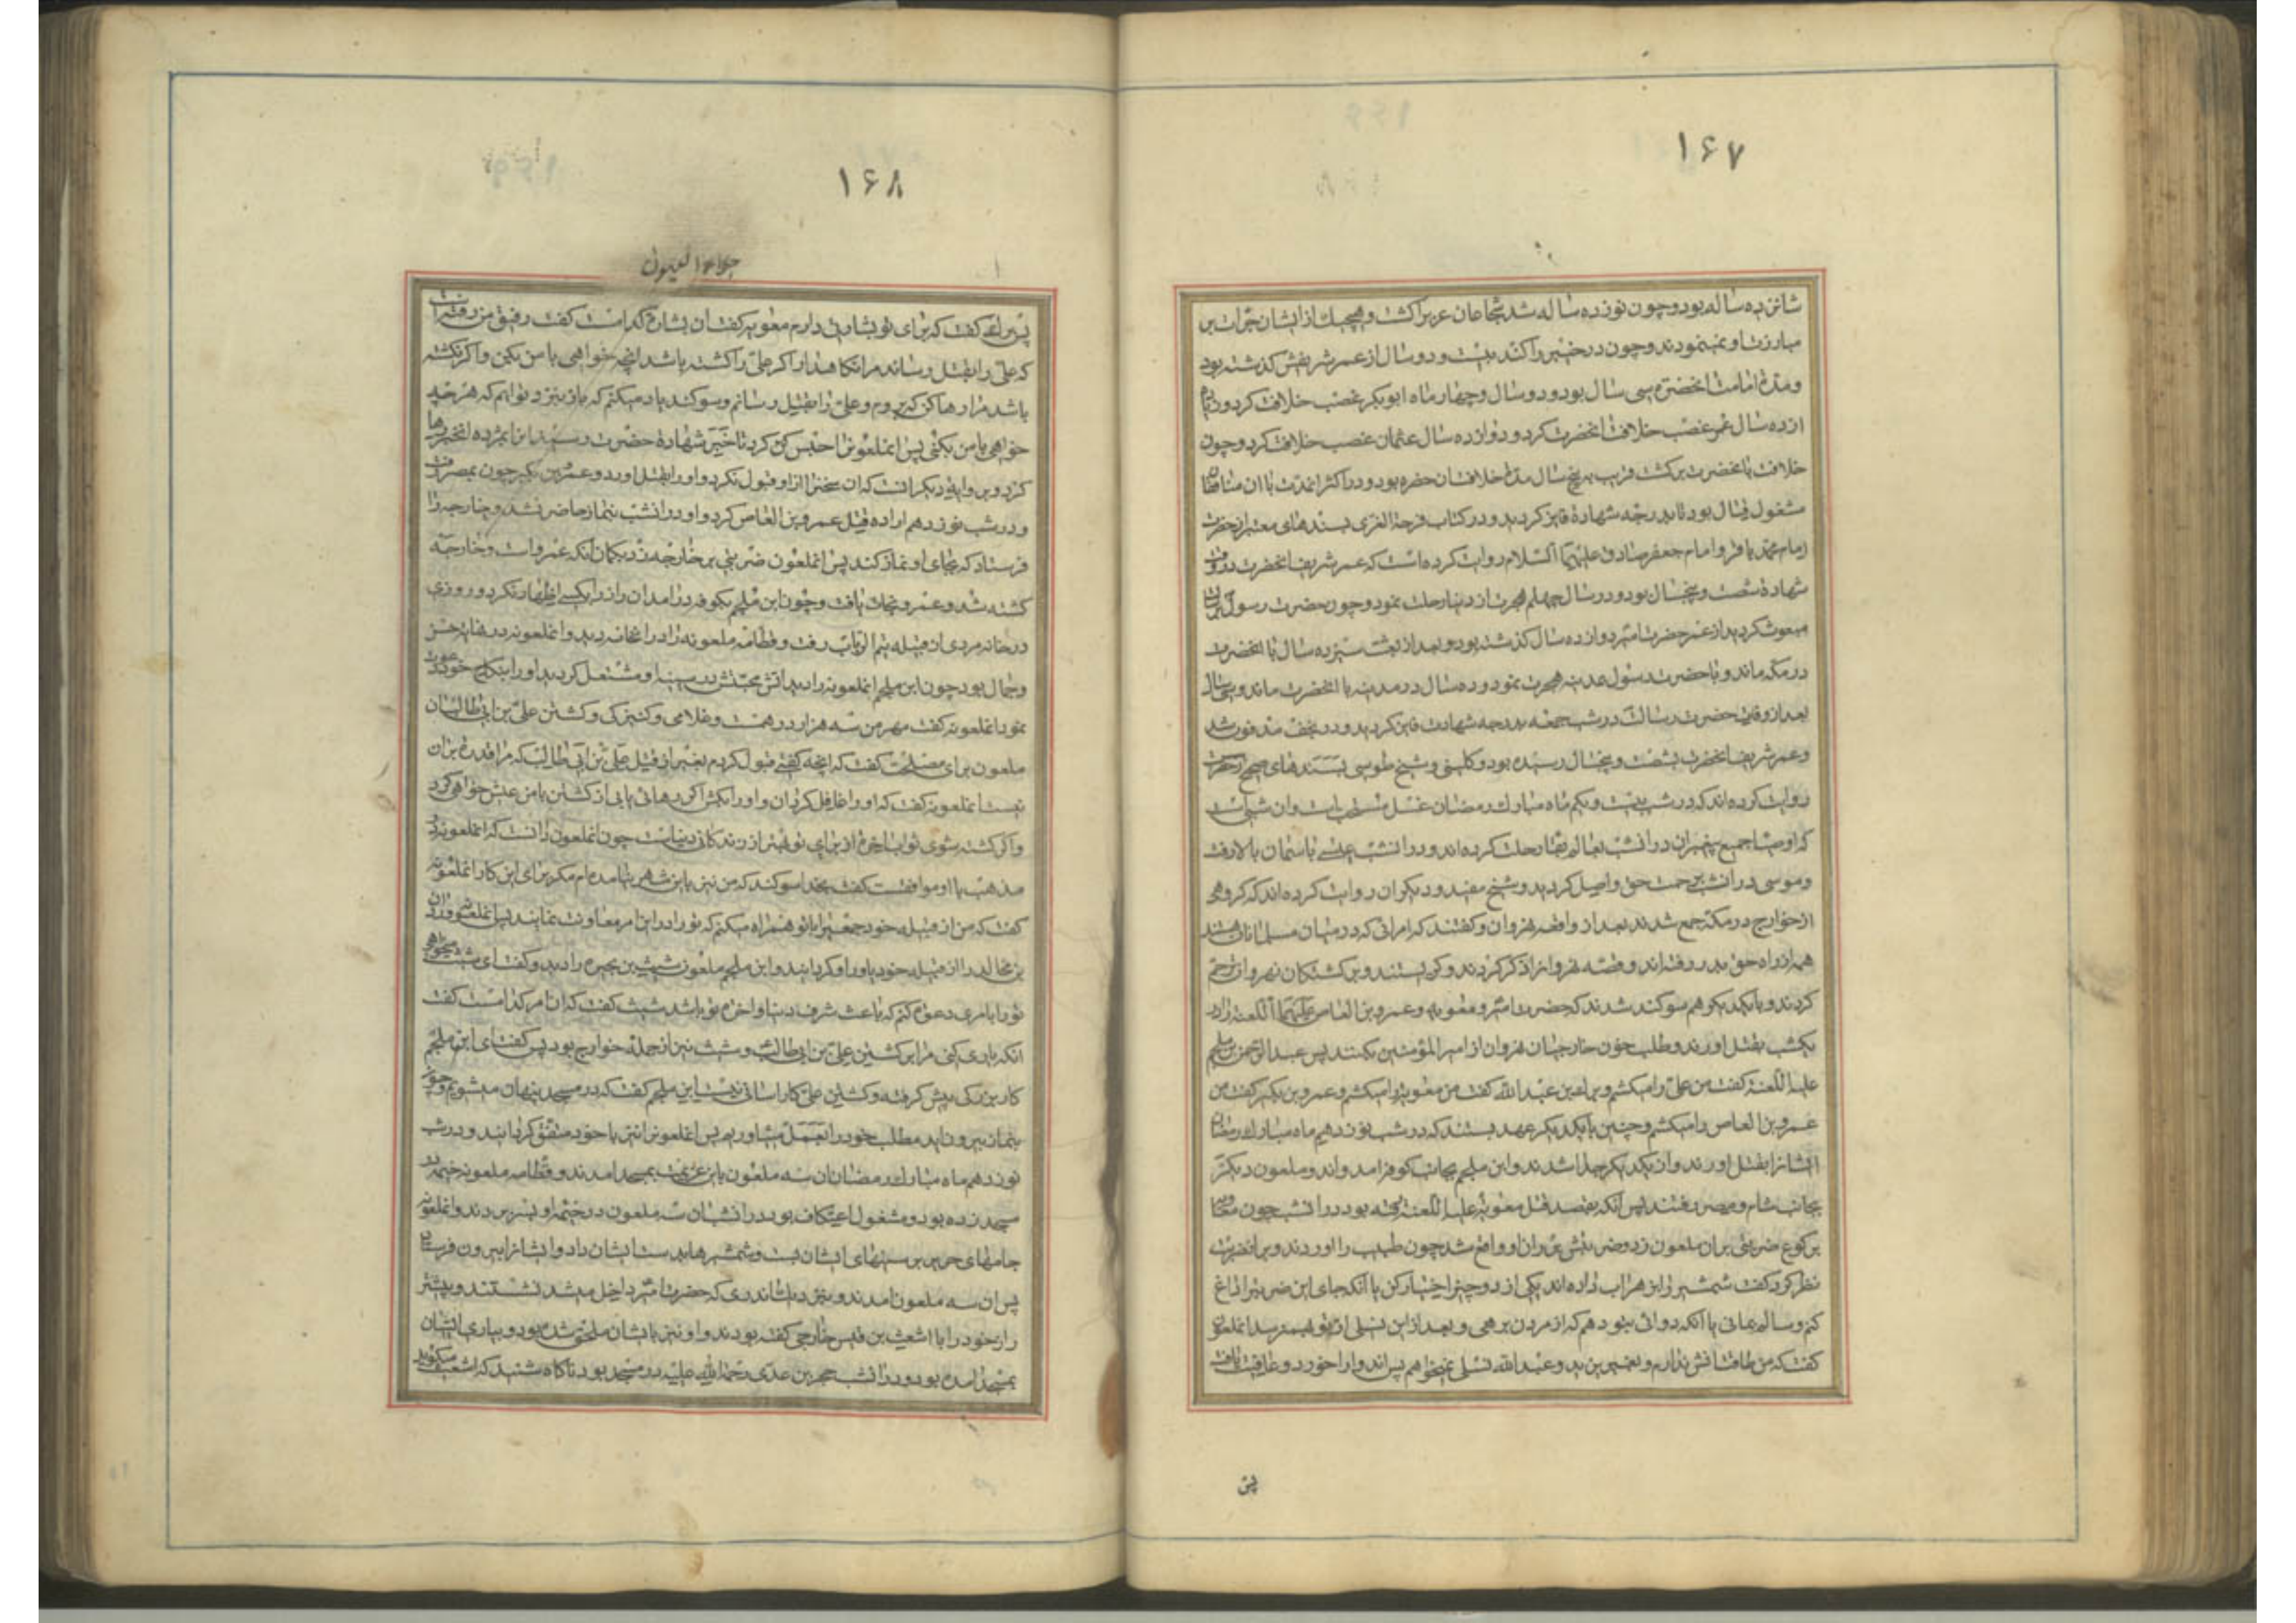 ۱۶۷
شانزده ساله بود و چون نوزده ساله شد شجاعان عرب را کشت و هیچیك از ایشان جرأت بر
مبارزت او نمینمودند و چون در خیبر را کند بیست و دو سال از عمر شریفش گذشته بود
و مدة امامت انحضرت سی سال بود و دو سال و چهار ماه ابوبکر غصب خلافت کرد و
از ده سال عمر غصب خلافت انحضرت کرد و دوازده سال عثمان غصب خلافت کرد و چون
خلافت بانحضرت برکشت قریب به پنج سال مدة خلافت ان حضرة بود و در اکثر انمدت با ان منافقان
مشغول قتال بود تا بدرجه شهادة فایز کردید و در کتاب فرحة الغری بسندهای معتبر از حضرت
امام محمد باقر و امام جعفر صادق علیهما السلام روایت کرده است که عمر شریف انحضرت در وقت
شهادة شصت و پنجسال بود و در سال چهلم هجرت از دنیا رحلت نمود و چون حضرت رسول
مبعوث کردید از عمر حضرت امیر دوازده سال گذشته بود و بعد از بعثت سیزده سال با انحضرت
در مکه ماند و با حضرت رسول بمدینه هجرت نمود و ده سال در مدینه با انحضرت ماند و سی سال
بعد از وفات حضرت رسالت در شب جمعه بدرجه شهادت فایز کردید و در نجف مدفون شد
و عمر شریف انحضرت بشصت و پنجسال رسیده بود و کلینی و شیخ طوسی بسندهای صحیح از حضرت
روایت کرده اند که در شب بیست و یکم ماه مبارك رمضان غسل مستحب است و ان شبی است
که اوصیا جمیع پیغمبران در انشب بعالم بقا رحلت کرده اند و در انشب عیسی باسمان بالا رفت
و موسی در انشب برحمت حق واصل کردید و شیخ مفید و دیکران روایت کرده اند که کروهی
از خوارج در مکه جمع شدند بعد از واقعه نهروان و کفتند که امرائی که در میان مسلمانان هستند
همه از راه حق بدر رفته اند و قصه نهروانرا ذکر کردند و کریستند و بر کشتکان نهروان ترحم
کردند و با یکدیکر هم سوکند شدند که حضرت امیر و معویه و عمرو بن العاص علیهما اللعنه را در
یکشب بقتل اورند و طلب خون خارجیان نهروان از امیر المؤمنین بکنند پس عبد الرحمن بن ملجم
علیه اللعنه کفت من علی را میکشم و برك بن عبد الله کفت من معویه را میکشم و عمرو بن بکیر کفت من
عمرو بن العاص را میکشم و چنین با یکدیکر عهد بستند که در شب نوزدهم ماه مبارك رمضان
ایشانرا بقتل اورند و از یکدیکر جدا شدند و ابن ملجم بجانب کوفه امد و اند و ملعون دیکر
بجانب شام و مصر رفتند پس انکه بقصد قتل معویه علیه اللعنه رفته بود در انشب چون معویه
برکوع ضربتی بران ملعون زد و ضربتش بر ران او واقع شد چون طبیب را اوردند و بر ان ضربت
نظر کرد و کفت شمشیر را بزهراب داده اند یکی از دو چیز اختیار کن یا انکه جای این ضربت را داغ
کنم و سالم بمانی یا انکه دوائی بتو دهم که از مردن برهی و بعد از این نسلی از تو بهم نرسد انملعون
کفت که من طاقت اتش ندارم و بغیر یزید و عبد الله نسلی نمیخواهم پس اندوا را خورد و عافیت یافت
پس
۱۶۸
جلاء العیون
پس برك کفت که برای تو بشارتی دارم معویه کفت ان بشارة کدامست کفت رفیق من رفته است
که علی را بقتل رساند مرا نکاهدار اکر علی را کشته باشد انچه خواهی با من بکن و اکر نکشته
باشد مرا رها کن که بروم و علی را بقتل رسانم و سوکند یاد میکنم که باز بنزد تو ایم که هر چه
خواهی با من بکنی پس انملعون را حبس کرد تا خبر شهادة حضرت رسید
کرد و بروایة دیکر انست که ان سخنرا از او قبول نکرد و او را بقتل اورد و عمرو بن بکیر چون بمصر رفت
و در شب نوزدهم اراده قتل عمرو بن العاص کرد و او در انشب بنماز حاضر نشد و خارجه را
فرستاد که بجای او نماز کند پس انملعون ضربتی بر خارجه زد بکمان انکه عمرو است و خارجه
کشته شد و عمرو نجات یافت و چون ابن ملجم بکوفه در امد ان راز را بکسی اظهار نکرد و روزی
در خانه مردی از قبیله تیم الرباب رفت و قطامه ملعونه را در انخانه دید و انملعونه در نهایت حسن
و جمال بود چون ابن ملجم انملعونه را دید اتش محبتش در سینه او مشتعل کردید او را بنکاح خود دعوت
نمود انملعونه کفت مهر من سه هزار درهمست و غلامی و کنیزک و کشتن علی بن ابی طالب ان
ملعون برای مصلحت کفت که انچه کفتی قبول کردم بغیر از قتل علی بن ابی طالب که مرا قدرة بران
نیست انملعونه کفت که او را غافل کردان و او را بکش اکر رهائی یابی از کشتن با من عیش خواهی کرد
و اکر کشته شوی ثواب اخرة از برای تو بهتر از زندکانی دنیاست چون انملعون دانست که انملعونه در
مذهب با او موافقست کفت بخدا سوکند که من نیز باین شهر نیامده ام مکر برای این کار انملعونه
کفت که من از قبیله خود جمعی را با تو همراه میکنم که تو را در این امر معاونت نمایند پس انملعونه وردان
بن مجالد را از قبیله خود یاور او کردانید و ابن ملجم ملعون شبیب بن بجره را دید و کفت ای شبیب میخواهی
تو را بامری دعوة کنم که باعث شرف دنیا و اخرة تو باشد شبیب کفت که ان امر کدامست کفت
انکه یاری کنی مرا بر کشتن علی بن ابی طالب و شبیب نیز از جمله خوارج بود پس کفت ای ابن ملجم
کار بزرکی پیش کرفته و کشتن علی کار اسانی نیست ابن ملجم کفت که در مسجد پنهان میشویم و چون
بنماز بیرون اید مطلب خود را بعمل میاوریم پس انملعون را نیز با خود متفق کردانید و در شب
نوزدهم ماه مبارك رمضان ان سه ملعون باین عزیمت بمسجد امدند و قطامه ملعونه خیمه در
مسجد زده بود و مشغول اعتکاف بود در انشب ان سه ملعون در خیمه او بسر بردند و انملعونه
جامهای حریر بر سینهای ایشان بست و شمشیرها بدست ایشان داد و ایشانرا بیرون فرستاد
پس ان سه ملعون امدند و بنزدیك اندری که حضرت امیر داخل میشد نشستند و پیشتر
راز خود را با اشعث بن قیس خارجی کفته بودند و او نیز با ایشان ملحق شده بود و بیاری ایشان
بمسجد امده بود و در انشب حجر بن عدی رحمة الله علیه در مسجد بود ناکاه شنید که اشعث میکوید